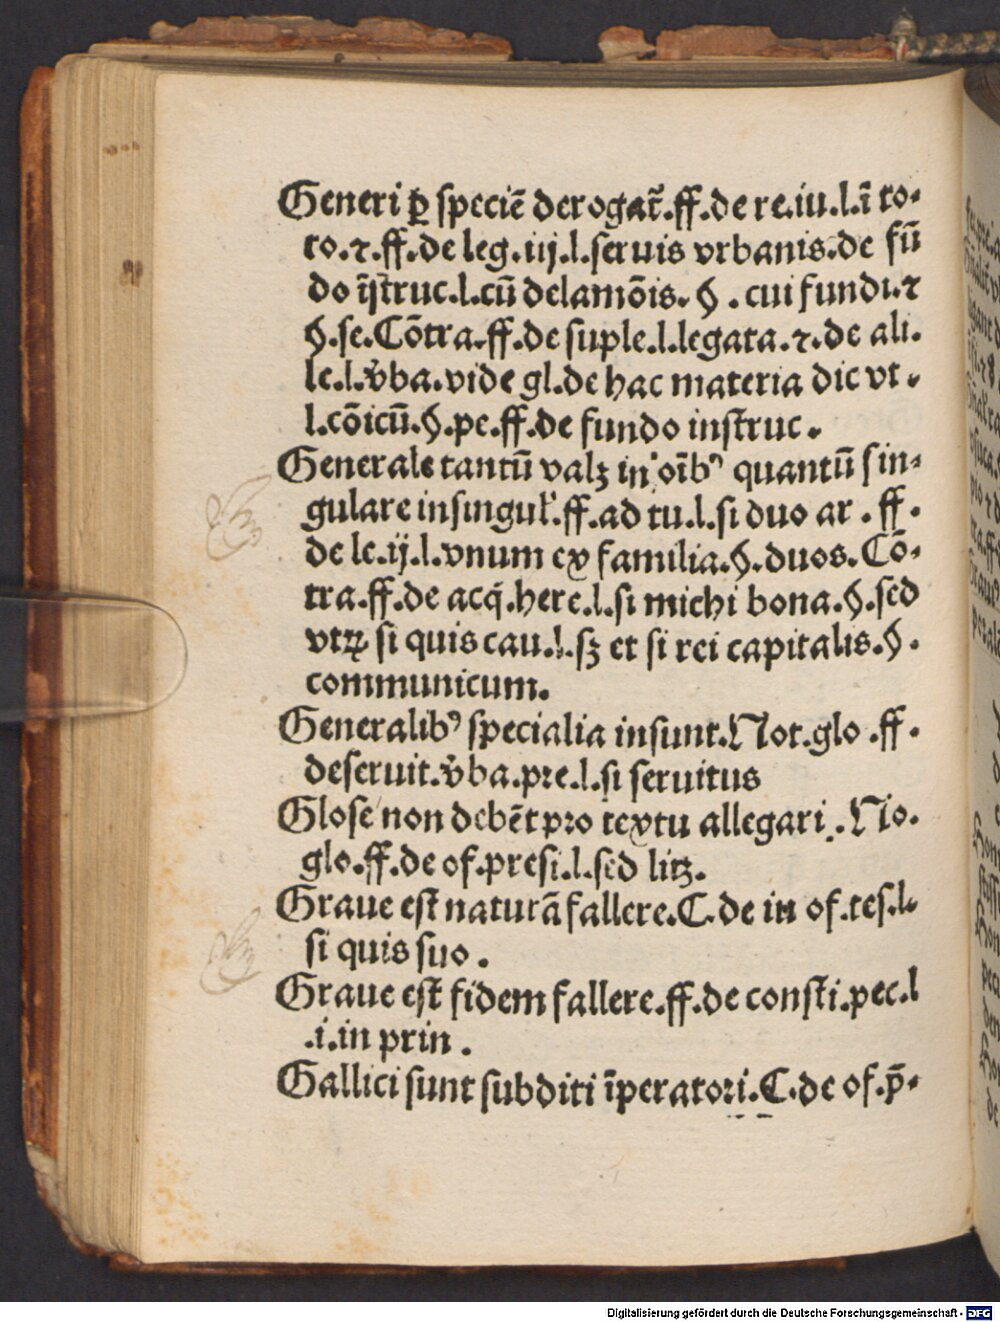 Generi ꝑ speciē derogat᷑.ff.de re.iu.l.ī to-
to.⁊.ff.de leg.iij.l.seruis vrbanis.de fū
do īstruc.l.cū delamōis.§.cui fundi.⁊
§.se.Cōtra.ff.de suple.l.legata.⁊.de ali.
le.l.v̾ba.vide gl.de hac materia dic vt.
l.cōicū.§.pe.ff.de fundo instruc.
Generale tantū valꝫ in oībꝰ quantū sin-
gulare insingul̾.ff.ad tu.l.si duo ar.ff.
de le.ij.l.vnum ex familia.§.duos.Cō-
tra.ff.de acq̄.here.l.si michi bona.§.sed
vtrꝝ si quis cau.l.sꝫ et si rei capitalis.§.
communicum.
Generalibꝰ specialia insunt.Not.glo.ff.
deseruit.v̾ba.pre.l.si seruitus
Glose non debēt pro textu allegari.No.
glo.ff.de of.presi.l.sed litꝫ.
Graue est naturā fallere.C.de in of.tes.l.
si quis suo.
Graue est fidem fallere.ff.de consti.pec.l
.i.in prin.
Gallici sunt subditi īperatori.C.de of.p̄-
Digitalisierung gefördert durch die Deutsche Forschungsgemeinschaft - DFG